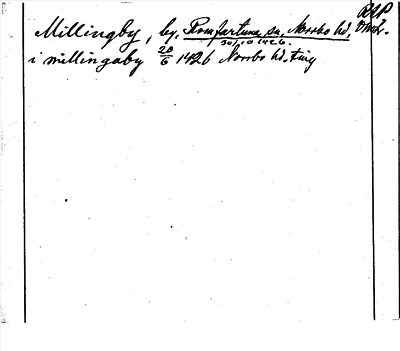 RAP
Millingby, by, Romfartuna sn, Norrbo hd, Or 12.
30/10 1426.
i millingaby 20/6 1426 Norrbo hd. ting